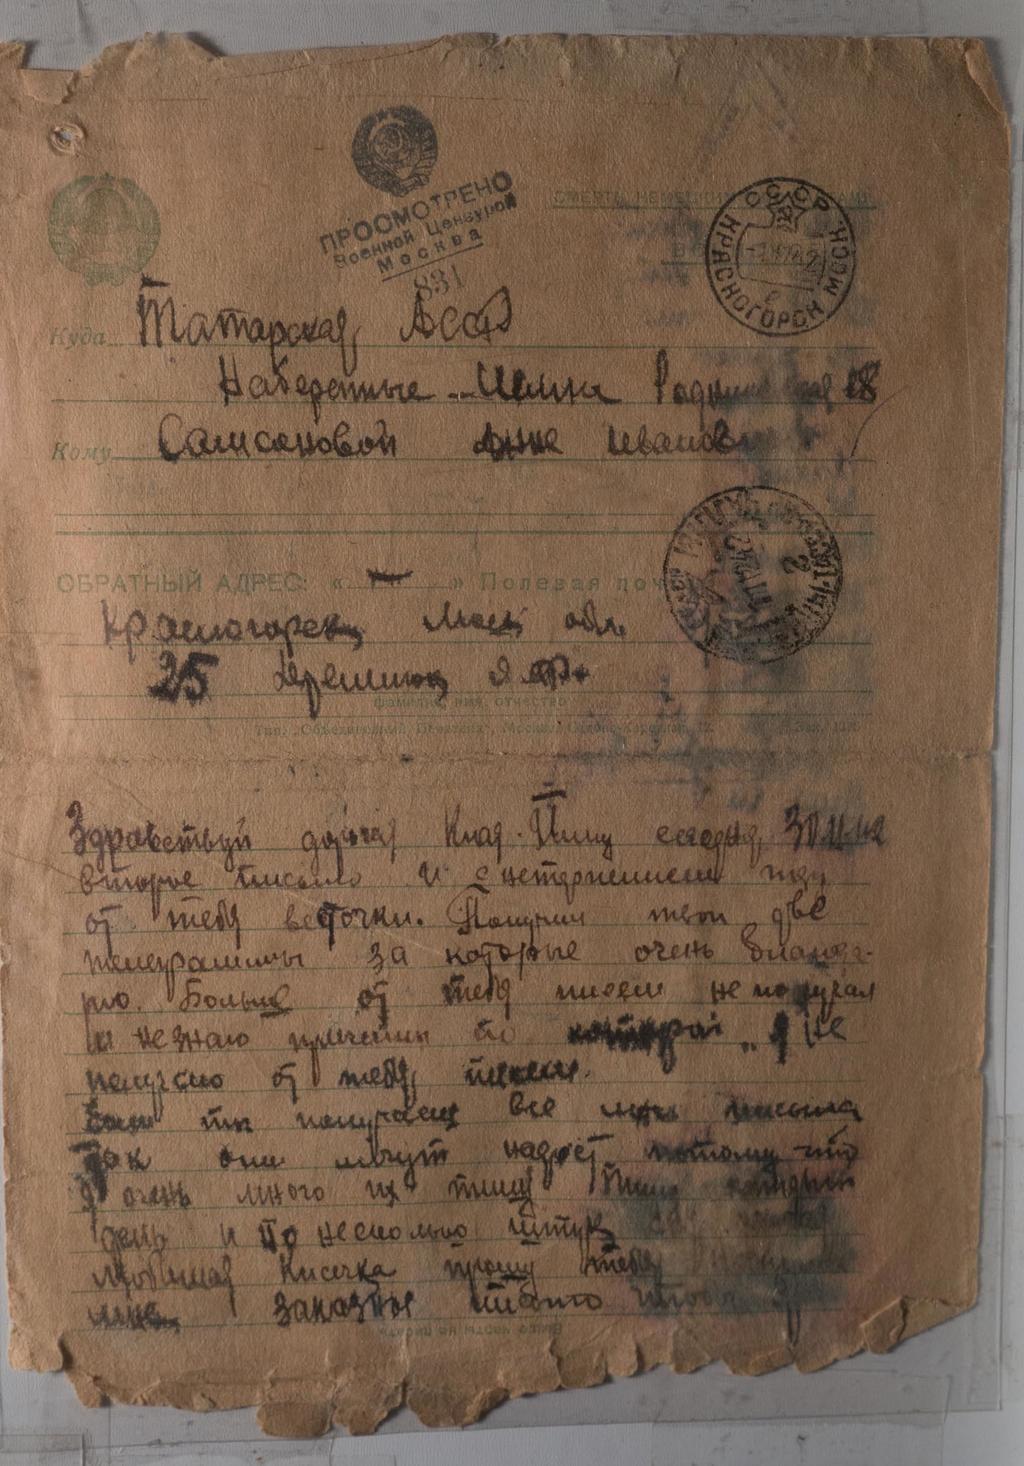 ПРОСМОТРЕНО
Военной Цензурой
Москва
831
СМЕРТЬ НЕМЕЦКИМ
СССР
КРАСНОГОРСК МОСК
Куда Татарская АССР
Набережные Челны 18
Кому Самсоновой Анне Иванов
ОБРАТНЫЙ АДРЕС: « » Полевая поч
Красногорск Моск обл
25
фамилия, имя, отчество
Здравствуй дорогая Пишу сегодня
второе письмо и с нетерпением жду
от тебя весточки. Получил твои две
телеграммы за которые очень благода-
рю. Больше от тебя писем не получал
и незнаю причины по которой я не
получаю от тебя писем.
Если ты получаеш все мои письма
Так они могут надоест потому что
я очень много их пишу Пишу каждый
день и по несколько штук
любимая Кисечка прошу тебя
мне заказные письмо чтобы